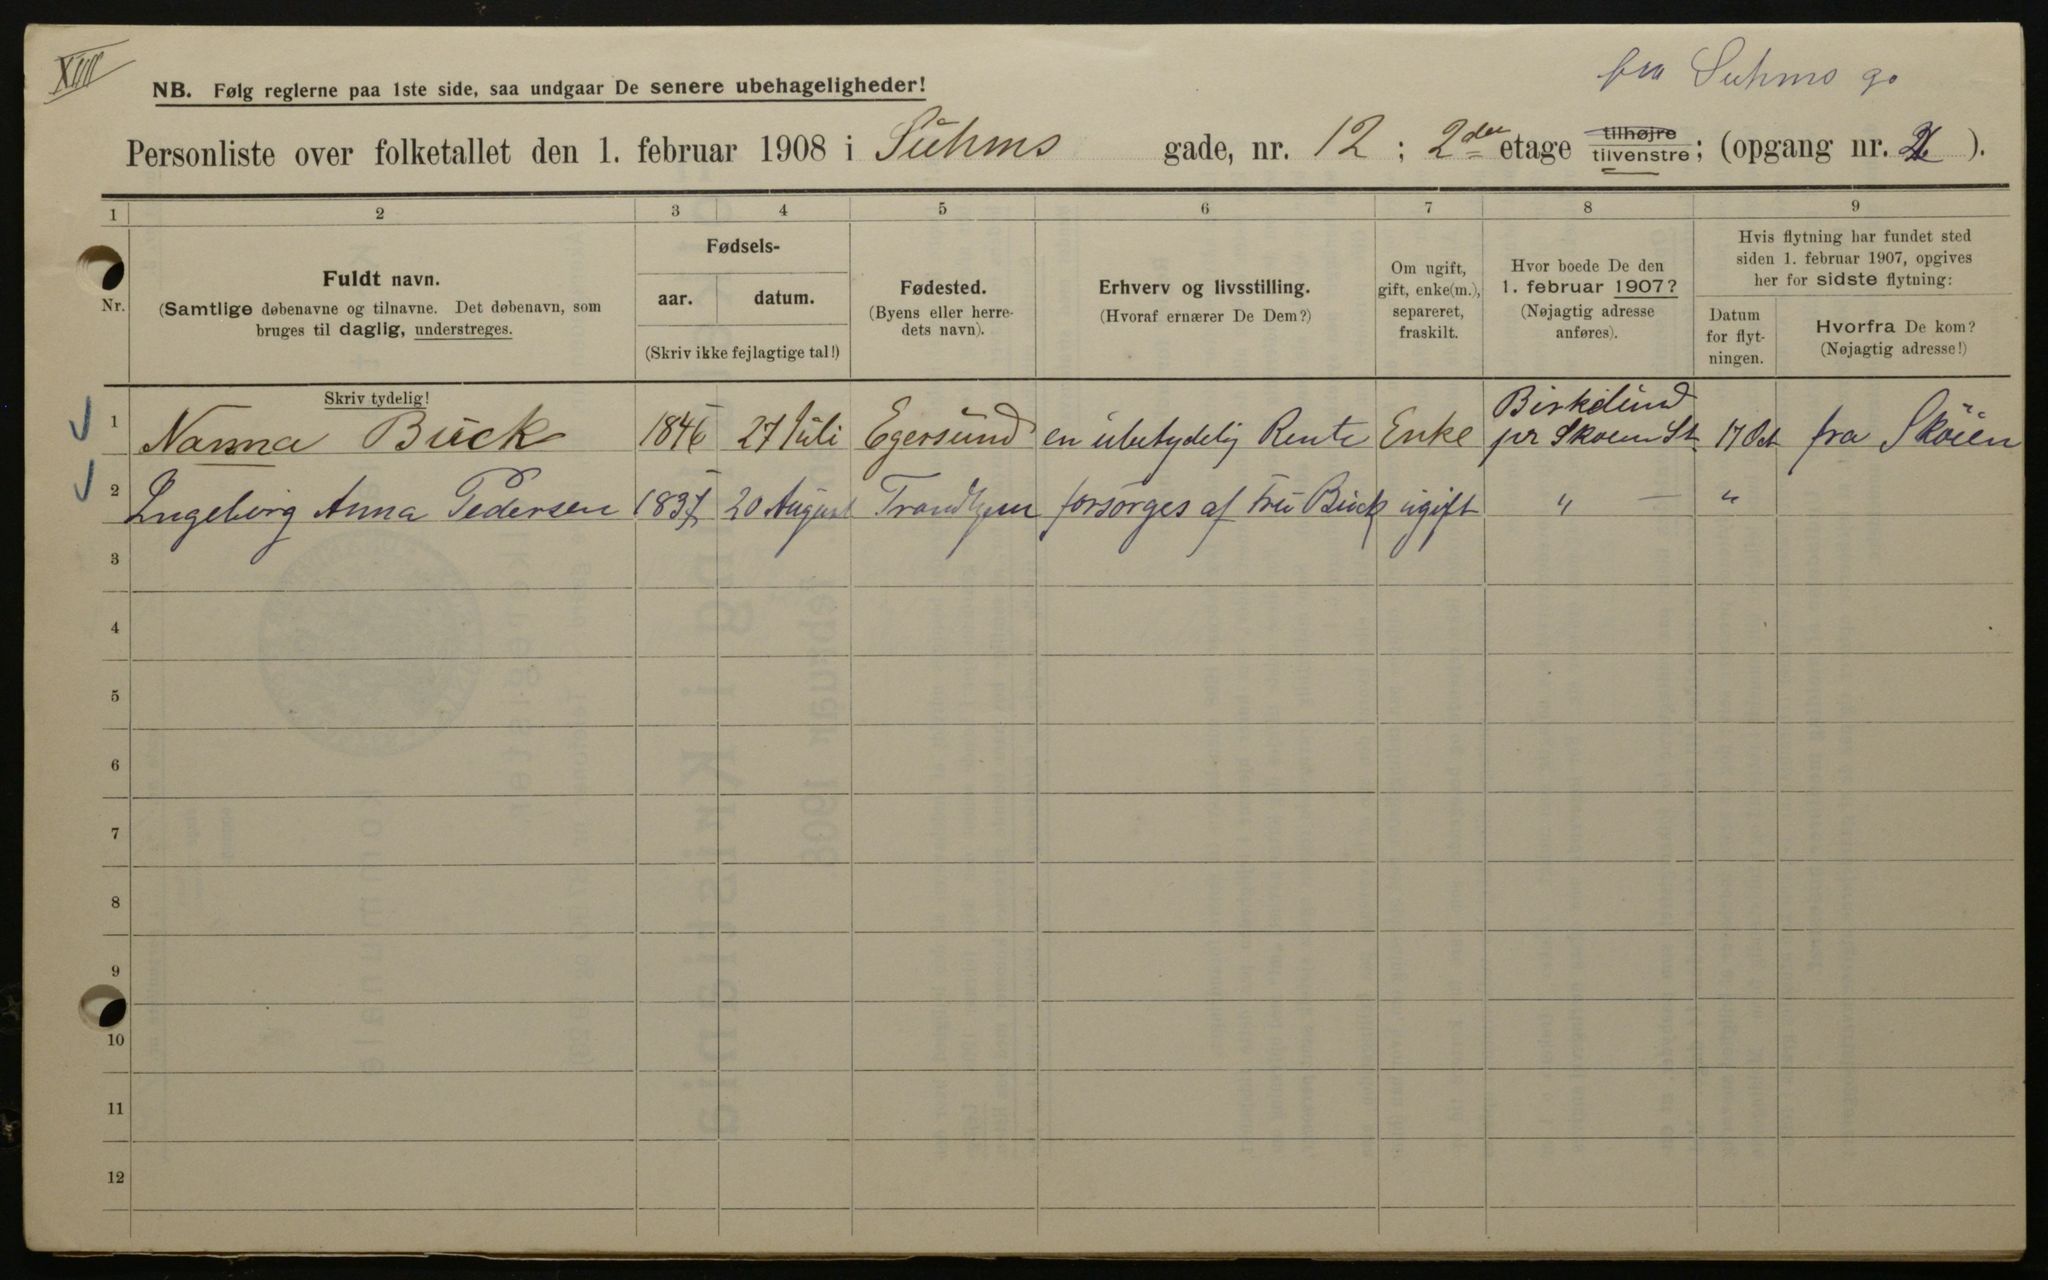 XIII
fra Suhms g.
NB. Følg reglerne paa 1ste side, saa undgaar De senere ubehageligheder!
Personliste over folketallet den 1. februar 1908 i Suhms gade, nr. 12 ; 2den etage tilhøjre tilvenstre; (opgang nr. ).
1 2 3 4 5 6 7 8 9
Nr.
Fuldt navn.
(Samtlige døbenavne og tilnavne. Det døbenavn, som
bruges til daglig, understreges.
Skriv tydelig!
Fødsels-
aar. datum.
(Skriv ikke fejlagtige tal!)
Fødested.
(Byens eller herre-
dets navn).
Erhverv og livsstilling.
(Hvoraf ernærer De Dem?)
Om ugift,
gift, enke(m.),
separeret,
fraskilt.
Hvor boede De den
1. februar 1907?
(Nøjagtig adresse
anføres).
Hvis flytning har fundet sted
siden 1. februar 1907, opgives
her for sidste flytning:
Datum
for flyt-
ningen.
Hvorfra De kom?
(Nøjagtig adresse!)
1 Nanna Buck 1846 27 Juli Egersund en ubetydelig Rente Enke Birkelund pr Skoien St 17 Oct fra Sköien
2 Ingeborg Anna Pedersen 1837 20 August Trondhjem forsørges af Fru Buck ugift " — "
3
4
5
6
7
8
9
10
11
12